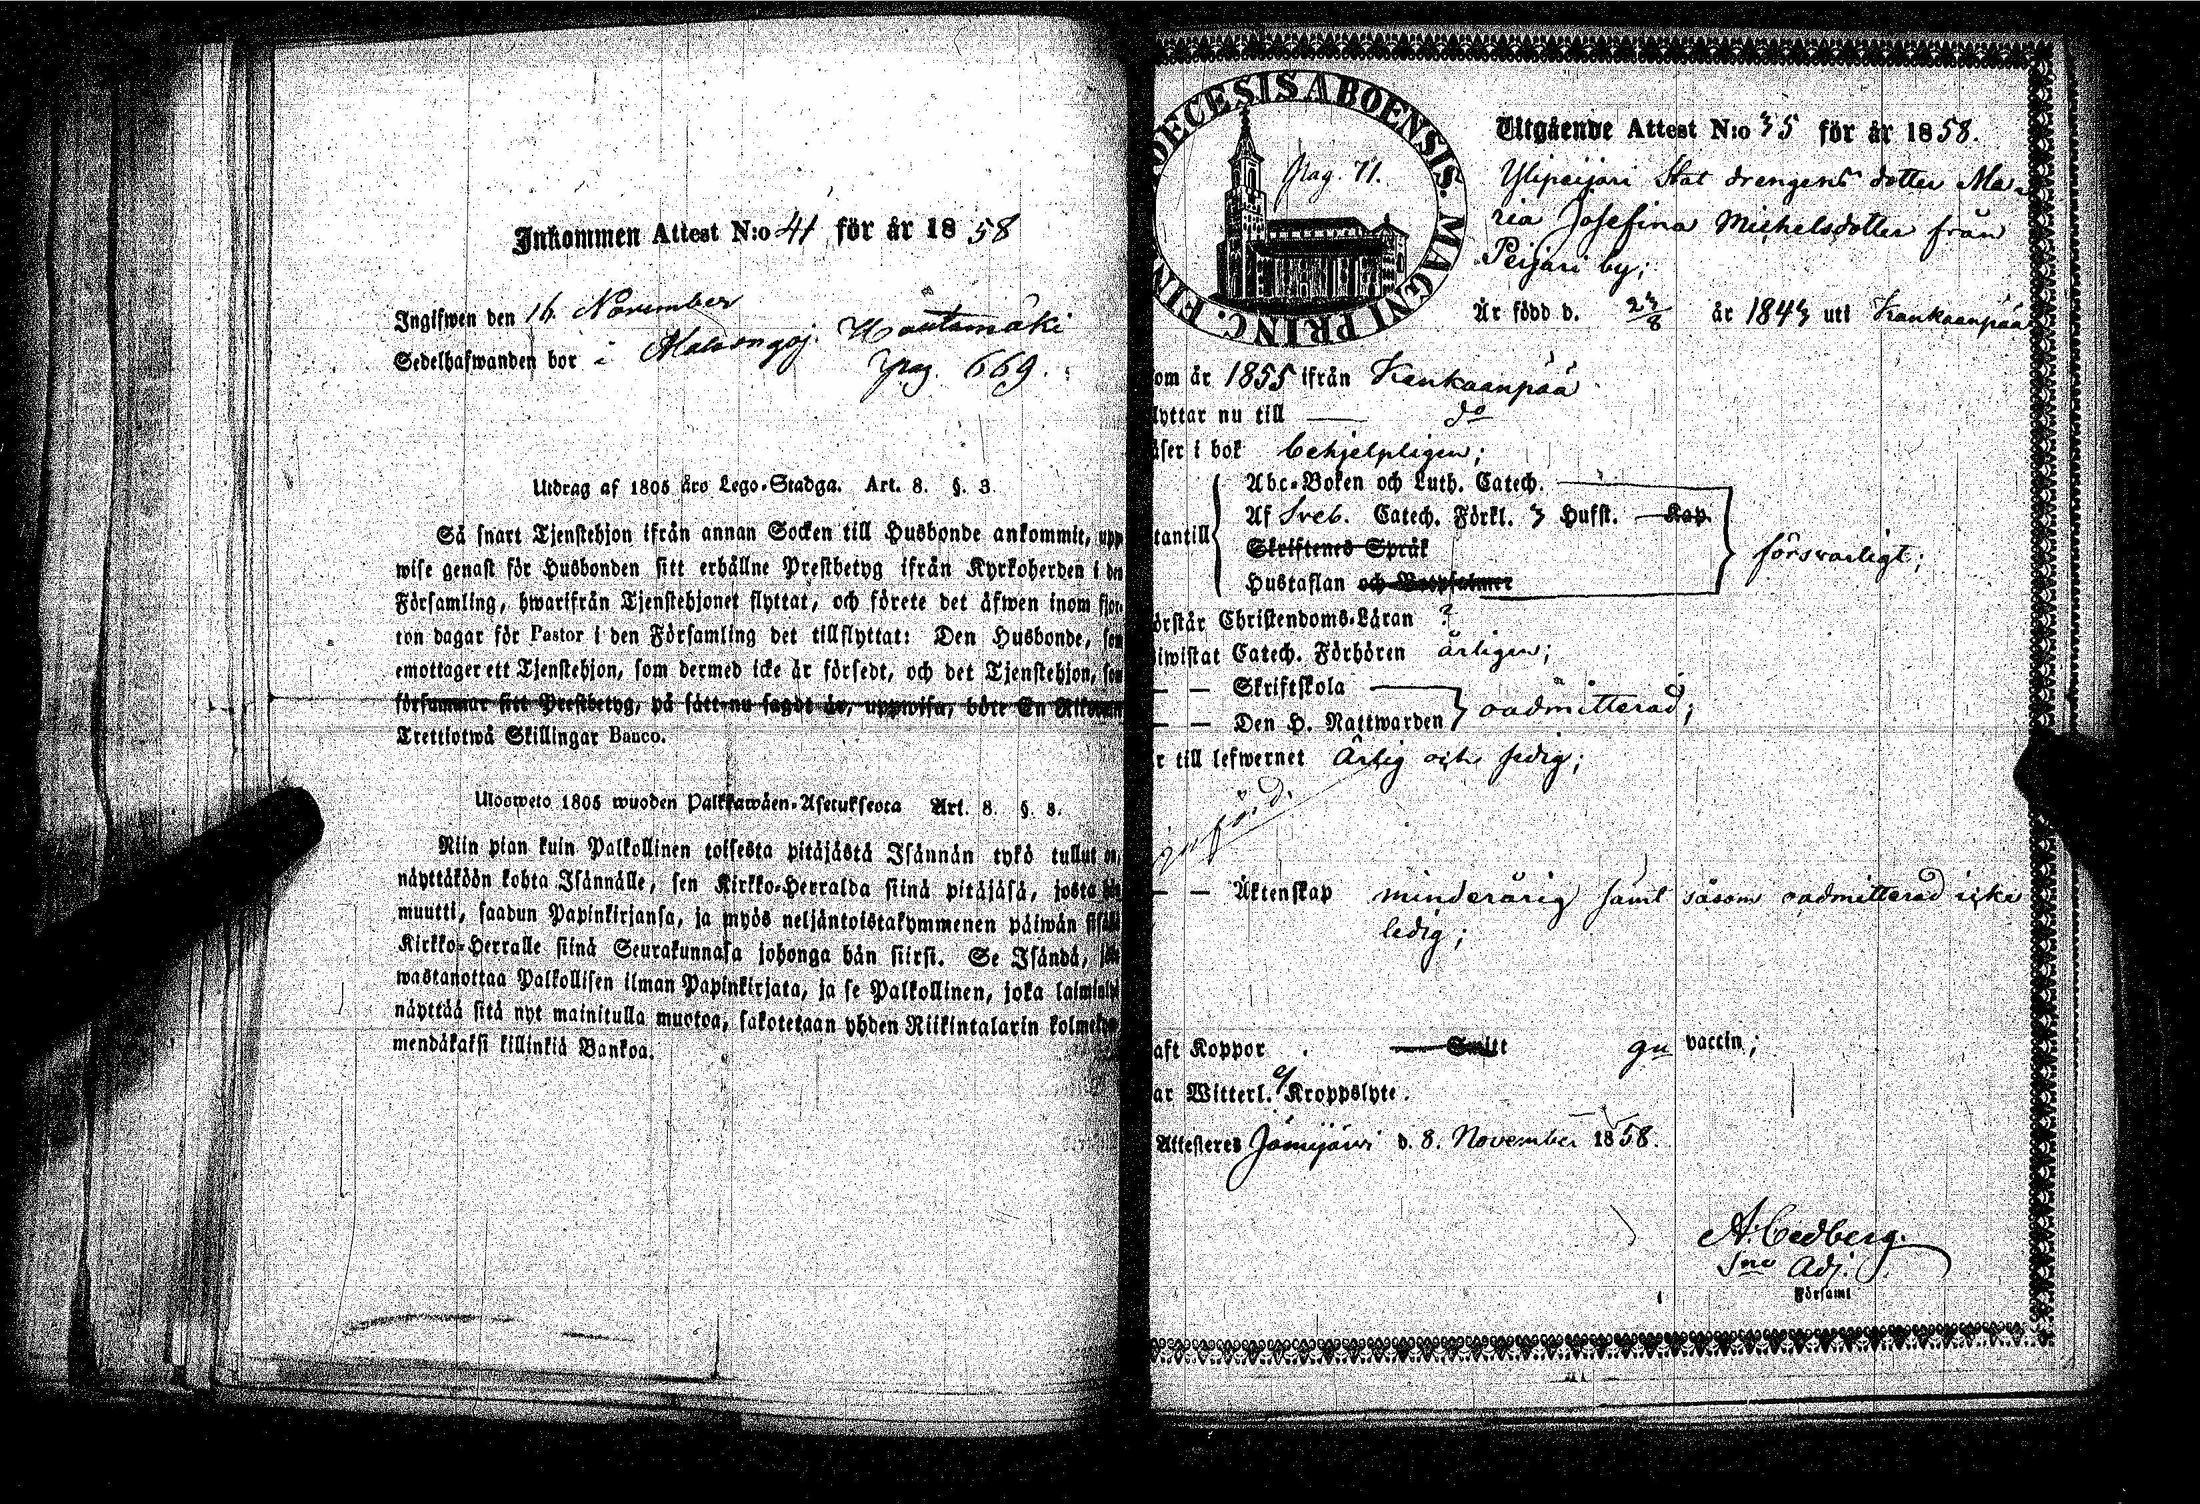 Inkommen Attest N:o 41 för år 1858
Ingifwen den 16 November
Sedelhafwanden bor i
Pag. 669.
Utdrag af 1805 års Lego-Stadga. Art. 8. §. 3.
Så snart Tjenstehjon ifrån annan Socken till Husbonde ankommit, upp
wise genast för Husbonden sitt erhållne Prestbetyg ifrån Kyrkoherden i den
Församling, hwarifrån Tjenstehjonet flyttat, och förete det äfwen inom fjor
ton dagar för Pastor i den Församling det tillflyttat: Den Husbonde, som
emottager ett Tjenstehjon, som dermed icke är försedt, och det Tjenstehjon, som
försummar sitt Prestbetyg, på sätt nu sagdt är, uppwisa, böte En Riksdaler
Trettiotwå Skillingar Banco.
Ulosweto 1805 wuoden Palkkawäen-Asetuksesta Art. 8. §. 3.
Niin pian kuin Palkollinen toisesta pitäjästä Isännän tykö tullut on,
näyttäköön kohta Isännälle, sen Kirkko-Herralda siinä pitäjäsä, josta hän
muutti, saadun Papinkirjansa, ja myös neljäntoistakymmenen päiwän sisällä
Kirkko-Herralle siinä Seurakunnasa johonga hän siirsi. Se Isändä, joka
wastanottaa Palkollisen ilman Papinkirjata, ja se Palkollinen, joka laiminlyö
näyttää sitä nyt mainitulla muotoa, sakotetaan yhden Riikintalarin kolmekym
mendäkaksi killinkiä Bankoa.
OECESIS ABOENSIS. MAGNI PRINC. FIN
Pag. 71.
Utgående Attest N:o 35 för år 1858.
Ylipeijari Stat drengens dotter Ma-
ria Josefina Michelsdotter från
Peijari by;
Är född d. 23/8 år 1843 uti Kankaanpää
om år 1855 ifrån Kankaanpää
lyttar nu till — do
äser i bok behjelpligen;
tantill
Abc-Boken och Luth. Catech.
Af Sveb. Catech. Förkl. 3 Hufst. Kap.
Skriftenes Språk
Hustaflan och Botpsalmer
försvarligt;
örstår Christendoms-Läran ?
iwistat Catech. Förhören årligen;
— — Skriftskola
— — Den H. Nattwarden
oadmitterad;
r till lefwernet Ärlig och sedig;
införd.
— — Äktenskap minderårig samt såsom oadmitterad icke
ledig;
aft Koppor . Smitt gn vaccin.;
ar Witterl. ej Kroppslyte.
Attesteres Jämijärvi d. 8. November 1858.
A. Cedberg.
Sne Adj.
Församl